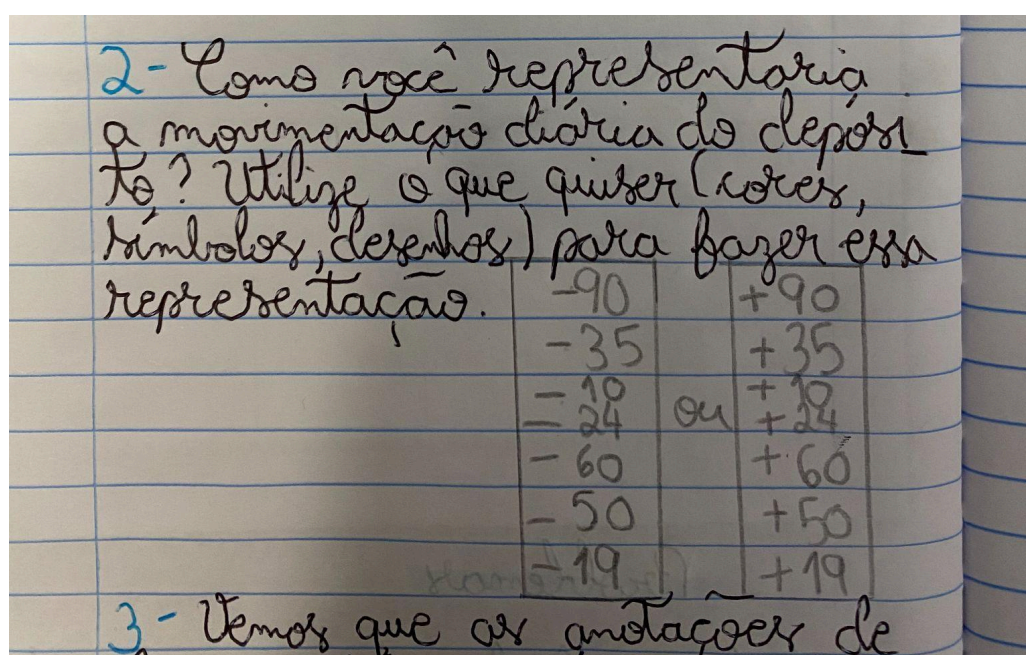 2- Como você representaria
a movimentação diária do depósi
to? Utilize o que quiser (cores,
símbolos, desenhos) para fazer essa
representação.
-90 +90
-35 +35
-10 +10
-24 ou +24
-60 +60
-50 +50
-19 +19
3- Vemos que as anotações de